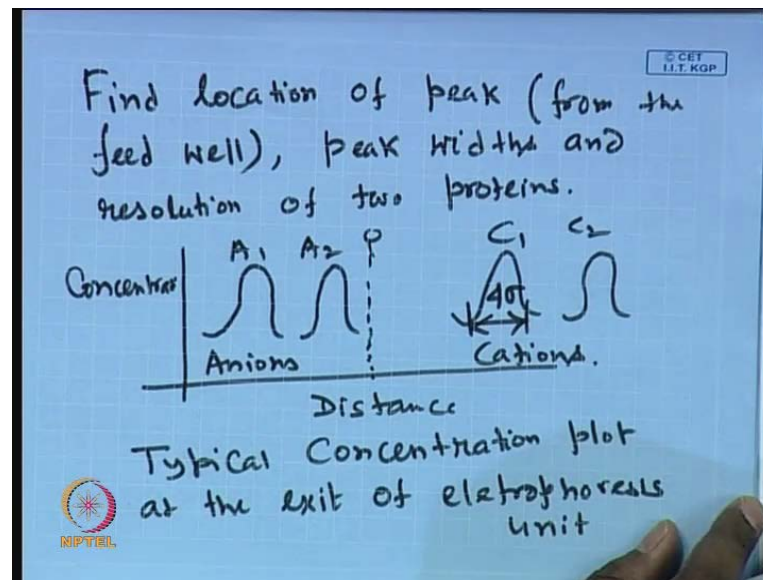 © CET
I.I.T. KGP
Find location of peak (from the
feed well), peak widths and
resolution of two proteins.
A1 A2 C1 C2
Concentrat
4σ
Anions Cations.
Distance
Typical Concentration plot
at the exit of eletrophoresis
unit
NPTEL